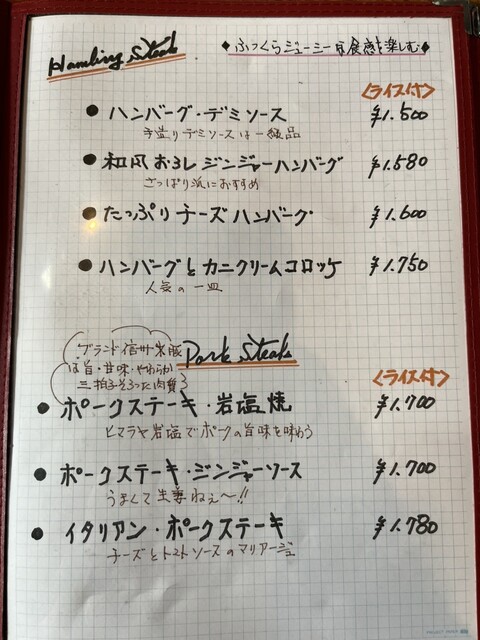 Hambing Steak
◆ふっくらジューシーな食感を楽しむ◆
<ライス付>
● ハンバーグ・デミソース ¥1.500
手造りデミソースは一級品
● 和風おろしジンジャーハンバーグ ¥1.580
さっぱり派におすすめ
● たっぷりチーズハンバーグ ¥1.600
● ハンバーグとカニクリームコロッケ ¥1.750
人気の一皿
ブランド信州米豚
は旨・甘味・やわらか
三拍子そろった肉質
Pork Steak
<ライス付>
● ポークステーキ・岩塩焼 ¥1.700
ヒマラヤ岩塩でポークの旨味を味わう
● ポークステーキ・ジンジャーソース ¥1.700
うまくて生姜ねぇ〜!!
● イタリアン・ポークステーキ ¥1.780
チーズとトマトソースのマリアージュ